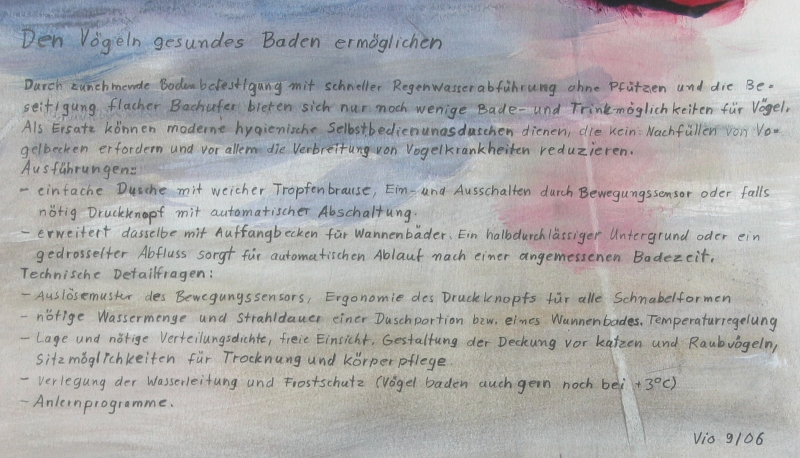 Den Vögeln gesundes Baden ermöglichen
Durch zunehmende Bodenbefestigung mit schneller Regenwasserabführung ohne Pfützen und die Be-
seitigung flacher Bachufer bieten sich nur noch wenige Bade- und Trinkmöglichkeiten für Vögel.
Als Ersatz können moderne hygienische Selbstbedienungsduschen dienen, die kein Nachfüllen von Vo-
gelbecken erfordern und vor allem die Verbreitung von Vogelkrankheiten reduzieren.
Ausführungen:
- einfache Dusche mit weicher Tropfenbrause, Ein- und Ausschalten durch Bewegungssensor oder falls
nötig Druckknopf mit automatischer Abschaltung.
- erweitert dasselbe mit Auffangbecken für Wannenbäder. Ein halbdurchlässiger Untergrund oder ein
gedrosselter Abfluss sorgt für automatischen Ablauf nach einer angemessenen Badezeit.
Technische Detailfragen:
- Auslösemuster des Bewegungssensors, Ergonomie des Druckknopfs für alle Schnabelformen
- nötige Wassermenge und Strahldauer einer Duschportion bzw. eines Wannenbades. Temperaturregelung
- Lage und nötige Verteilungsdichte, freie Einsicht. Gestaltung der Deckung vor Katzen und Raubvögeln,
Sitzmöglichkeiten für Trocknung und Körperpflege
- Verlegung der Wasserleitung und Frostschutz (Vögel baden auch gern noch bei +3°C)
- Anlernprogramme.
Vio 9/06